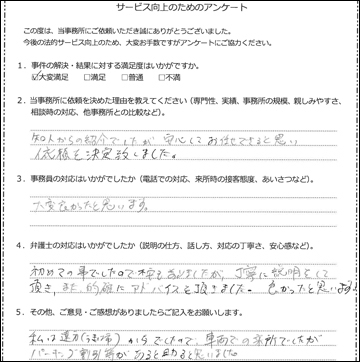 サービス向上のためのアンケート
この度は、当事務所にご依頼いただき誠にありがとうございました。
今後の法的サービス向上のため、大変お手数ですがアンケートにご協力ください。
1.事件の解決・結果に対する満足度はいかがですか。
☑大変満足 □満足 □普通 □不満
2.当事務所に依頼を決めた理由を教えてください(専門性、実績、事務所の規模、親しみやすさ、
相談時の対応、他事務所との比較など)。
知人からの紹介でしたが 安心して お任せできると思い
依頼を決定致しました。
3.事務員の対応はいかがでしたか(電話での対応、来所時の接客態度、あいさつなど)。
大変良かったと思います。
4.弁護士の対応はいかがでしたか(説明の仕方、話し方、対応の丁寧さ、安心感など)。
初めての事でしたので 不安もありましたが、丁寧に説明をして
頂き、また、的確にアドバイスを頂きました。 良かったと思います
5.その他、ご意見・ご感想がありましたらご記入をお願いします。
私は遠方 からでしたので、車両での来所でしたが
割引等があると助ると思いました。